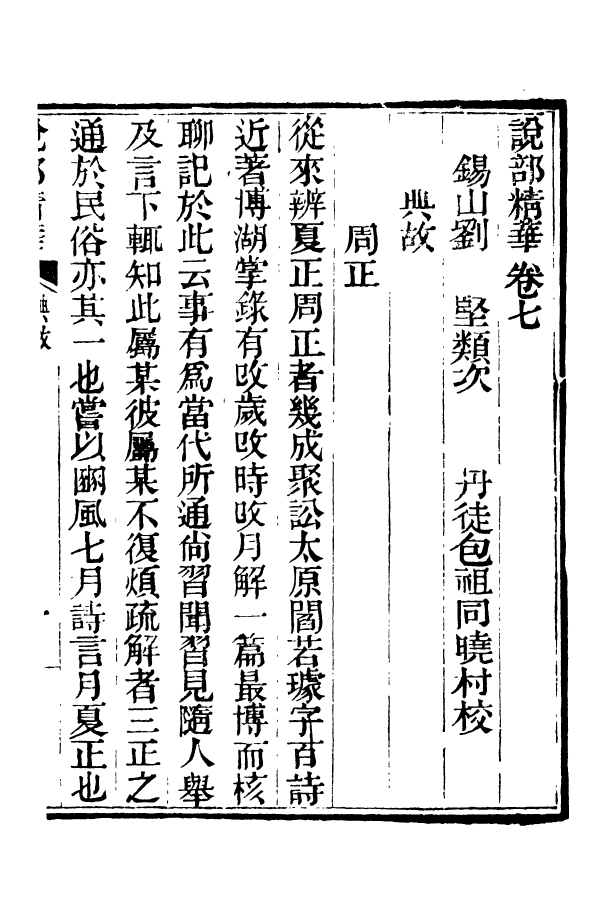 說部精華卷七
錫山劉　堅類次　丹徒包祖同曉村校
典故
周正
從來辨夏正周正者幾成聚訟太原閻若璩字百詩
近著博湖掌錄有攺歲攺時攺月解一篇最博而核
聊記於此云事有爲當代所通尙習聞習見隨人舉
及言下輒知此屬某彼屬某不復煩疏解者三正之
通於民俗亦其一也嘗以豳風七月詩言月夏正也
說部精華
典故
一